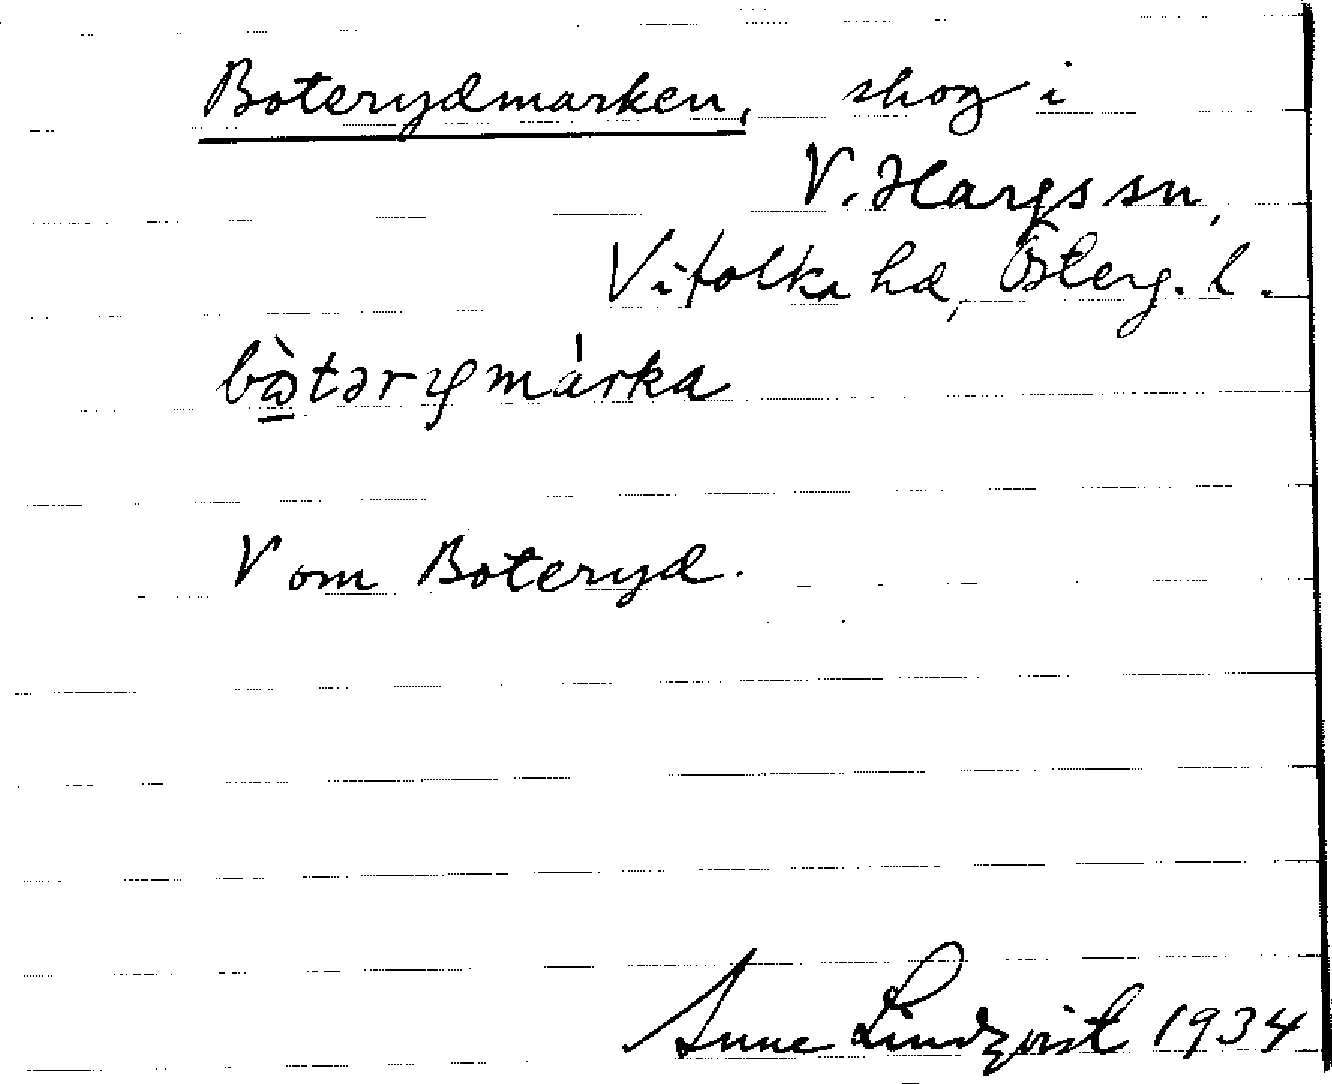 Boterydmarken, skog i
V. Hargs sn,
Vifolka hd, Österg. l.
bὼtərymárka
V om Boteryd.
Sune Lindqvist 1934